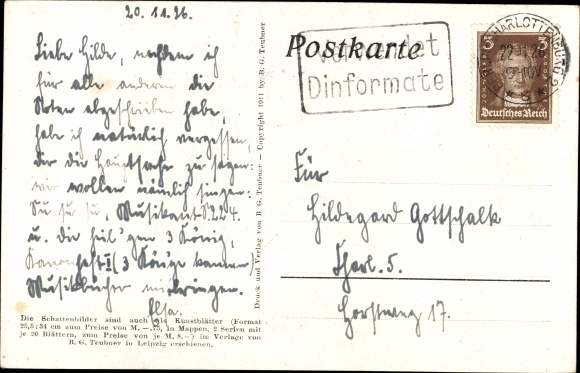 20.11.26.
Liebe Hilde, nachdem ich
für alle anderen die
Noten abgeschrieben habe,
habe ich natürlich vergessen,
dir die Hauptsache zu sagen:
wir wollen nämlich singen:
Su su su, Musikant S. 224.
u. die heil'gen 3 König,
Kanonheft II (3 Könige kamen)
Musikbücher mitbringen.
Elsa.
Die Schattenbilder sind auch als Kunstblätter (Format
25,5:34 cm zum Preise von M. —.75, in Mappen, 2 Serien mit
je 20 Blättern, zum Preise von je M. 8.—) im Verlage von
B. G. Teubner in Leipzig erschienen.
Druck und Verlag von B. G. Teubner — Copyright 1911 by B. G. Teubner
Postkarte
Verwendet
Dinformate
CHARLOTTENBURG 2
22.11.26
3 3
Deutsches Reich
Für
Hildegard Gottschalk
Charl. 5.
Horstweg 17.